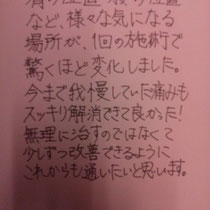 など、様々な気になる
場所が、1回の施術で
驚くほど変化しました。
今まで我慢していた痛みも
スッキリ解消できて良かった!
無理に治すのではなくて
少しずつ改善できるように
これからも通いたいと思います。